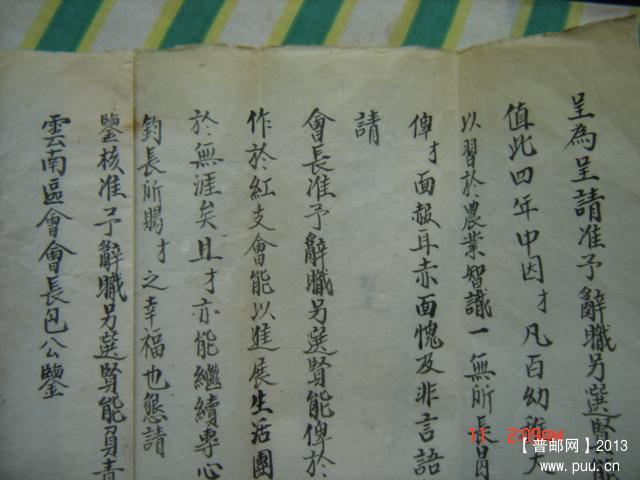 呈為呈請准予辭職另選賢能
值此四年中因才凡百幼稚尤
以習於農業智識一無所長
俾才面赧耳赤面愧及非言語
請
會長准予辭職另選賢能俾於
作於紅支會能以進展生活團
於無涯矣且才亦能繼續專心
鈞長所賜才之幸福也懇請
鑒核准予辭職另選賢能負責
雲南區會會長包公鑒
【普邮网】2013
www.puu.cn